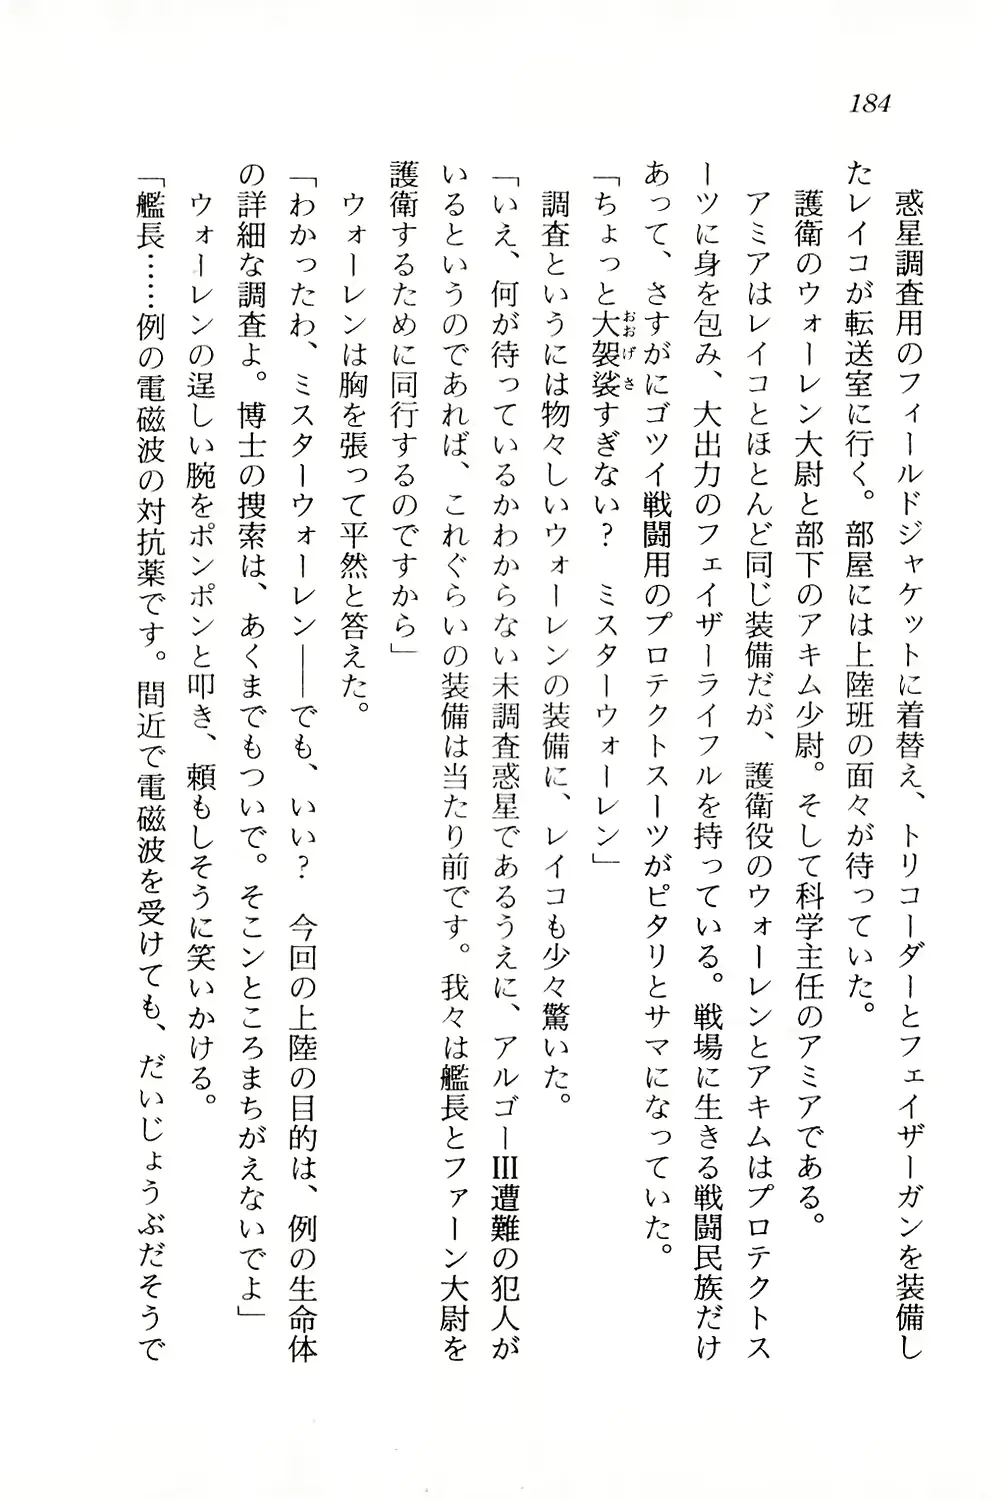 184
　惑星調査用のフィールドジャケットに着替え、トリコーダーとフェイザーガンを装備し
たレイコが転送室に行く。部屋には上陸班の面々が待っていた。
　護衛のウォーレン大尉と部下のアキム少尉。そして科学主任のアミアである。
　アミアはレイコとほとんど同じ装備だが、護衛役のウォーレンとアキムはプロテクトス
ーツに身を包み、大出力のフェイザーライフルを持っている。戦場に生きる戦闘民族だけ
あって、さすがにゴツイ戦闘用のプロテクトスーツがピタリとサマになっていた。
「ちょっと大袈裟すぎない？　ミスターウォーレン」
おおげさ
　調査というには物々しいウォーレンの装備に、レイコも少々驚いた。
「いえ、何が待っているかわからない未調査惑星であるうえに、アルゴーⅢ遭難の犯人が
いるというのであれば、これぐらいの装備は当たり前です。我々は艦長とファーン大尉を
護衛するために同行するのですから」
　ウォーレンは胸を張って平然と答えた。
「わかったわ、ミスターウォーレン――でも、いい？　今回の上陸の目的は、例の生命体
の詳細な調査よ。博士の捜索は、あくまでもついで。そこンところまちがえないでよ」
　ウォーレンの逞しい腕をポンポンと叩き、頼もしそうに笑いかける。
「艦長……例の電磁波の対抗薬です。間近で電磁波を受けても、だいじょうぶだそうで